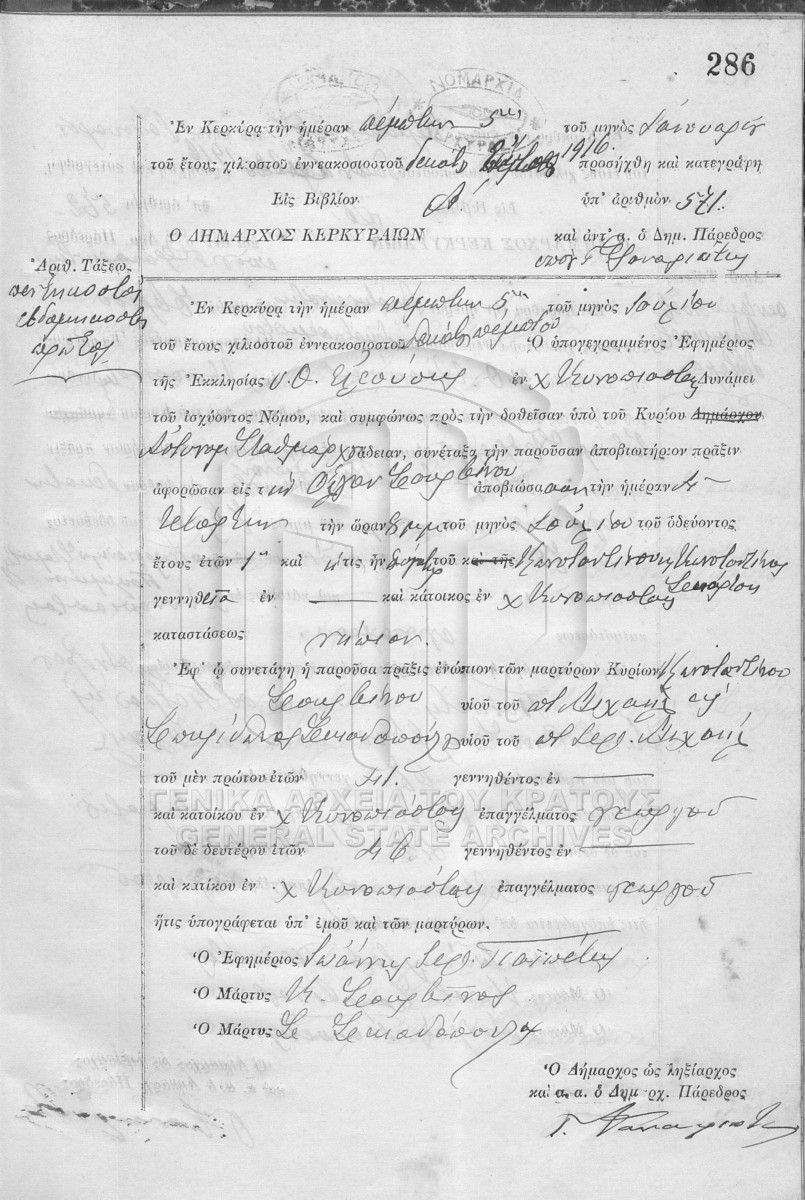 286
ΝΟΜΑΡΧΙΑ
Ἐν Κερκύρᾳ τὴν ἡμέραν πέμπτην 5ην τοῦ μηνὸς Ἰανουαρίου
τοῦ ἔτους χιλιοστοῦ ἐννεακοσιοστοῦ δεκάτου 1916. προσήχθη καὶ κατεγράφη
Εἰς Βιβλίον Α΄ ὑπ' ἀριθμὸν 571.
Ο ΔΗΜΑΡΧΟΣ ΚΕΡΚΥΡΑΙΩΝ καὶ ἀντ' α. ὁ Δημ. Πάρεδρος
Ἀριθ. Τάξεως
πεντακοστὸς
ἑβδομηκοστὸς
πρῶτος
Ἐν Κερκύρᾳ τὴν ἡμέραν πέμπτην 5ην τοῦ μηνὸς Ἰουλίου
τοῦ ἔτους χιλιοστοῦ ἐννεακοσιοστοῦ δεκάτου πέμπτου Ὁ ὑπογεγραμμένος Ἐφημέριος
τῆς Ἐκκλησίας ἐν χ Κυνοπιάστας Δυνάμει
τοῦ ἰσχύοντος Νόμου, καὶ συμφώνως πρὸς τὴν δοθεῖσαν ὑπὸ τοῦ Κυρίου Δημάρχου
Ἀστυνομ Σταθμάρχου ἄδειαν, συνέταξα τὴν παροῦσαν ἀποβιωτήριον πρᾶξιν
ἀφορῶσαν εἰς τὴν Σουρβίνου ἀποβιώσασαν τὴν ἡμέραν
Τετάρτην τὴν ὥραν τοῦ μηνὸς Ἰουλίου τοῦ ὁδεύοντος
ἔτους ἐτῶν καὶ ἥτις ἦν τοῦ καὶ τῆς Κωνσταντίνου
γεννηθεῖσα ἐν — καὶ κάτοικος ἐν χ Κυνοπιάστας
καταστάσεως νήπιον.
Ἐφ' ᾧ συνετάγη ἡ παροῦσα πρᾶξις ἐνώπιον τῶν μαρτύρων Κυρίων Κωνσταντίνου
Σουρβίνου υἱοῦ τοῦ ποτὲ Μιχαὴλ καὶ
Σπυρίδωνος υἱοῦ τοῦ ποτὲ Μιχαὴλ
τοῦ μὲν πρώτου ἐτῶν 41. γεννηθέντος ἐν —
ΓΕΝΙΚΑ ΑΡΧΕΙΑ ΤΟΥ ΚΡΑΤΟΥΣ
καὶ κατοίκου ἐν χ Κυνοπιάστας ἐπαγγέλματος γεωργοῦ
GENERAL STATE ARCHIVES
τοῦ δὲ δευτέρου ἐτῶν 46. γεννηθέντος ἐν —
καὶ κατίκου ἐν χ Κυνοπιάστας ἐπαγγέλματος γεωργοῦ
ἥτις ὑπογράφεται ὑπ' ἐμοῦ καὶ τῶν μαρτύρων.
Ὁ Ἐφημέριος Ἰωάννης
Ὁ Μάρτυς Κ. Σουρβῖνος
Ὁ Μάρτυς Σ.
Ὁ Δήμαρχος ὡς ληξίαρχος
καὶ α. α. ὁ Δημ ρχ. Πάρεδρος